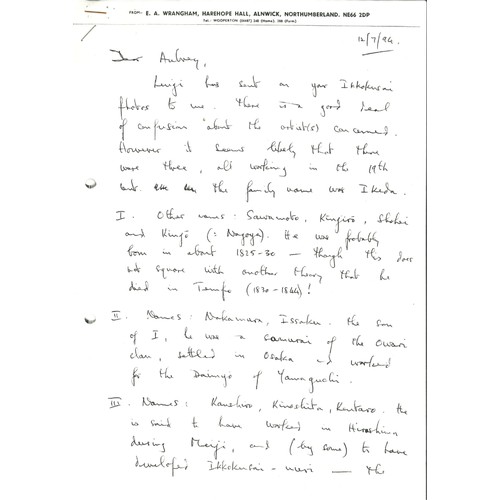 FROM: E. A. WRANGHAM, HAREHOPE HALL, ALNWICK, NORTHUMBERLAND, NE66 2DP
12/7/94.
Dear Aubrey,
Luigi has sent on your Ikkokusai
photos to me. There is a good deal
of confusion about the artist(s) concerned.
However it seems likely that there
were three, all working in the 19th
cent. the family name was Ikeda.
I. Other names: Sawamoto, Kinjiro, Shohei
and Kingō (: Nagoya). He was probably
born in about 1825-30 — though this does
not square with another theory that he
died in Tempo (1830-1844)!
II. Names: Nakamura, Issaku. The son
of I, he was a samurai of the Owari
clan, settled in Osaka and worked
for the Daimyo of Yamaguchi.
III. Names: Kanshiro, Kinoshita, Kentaro. He
is said to have worked in Hiroshima
during Meiji, and (by some) to have
developed Ikkokusai-nuri — the